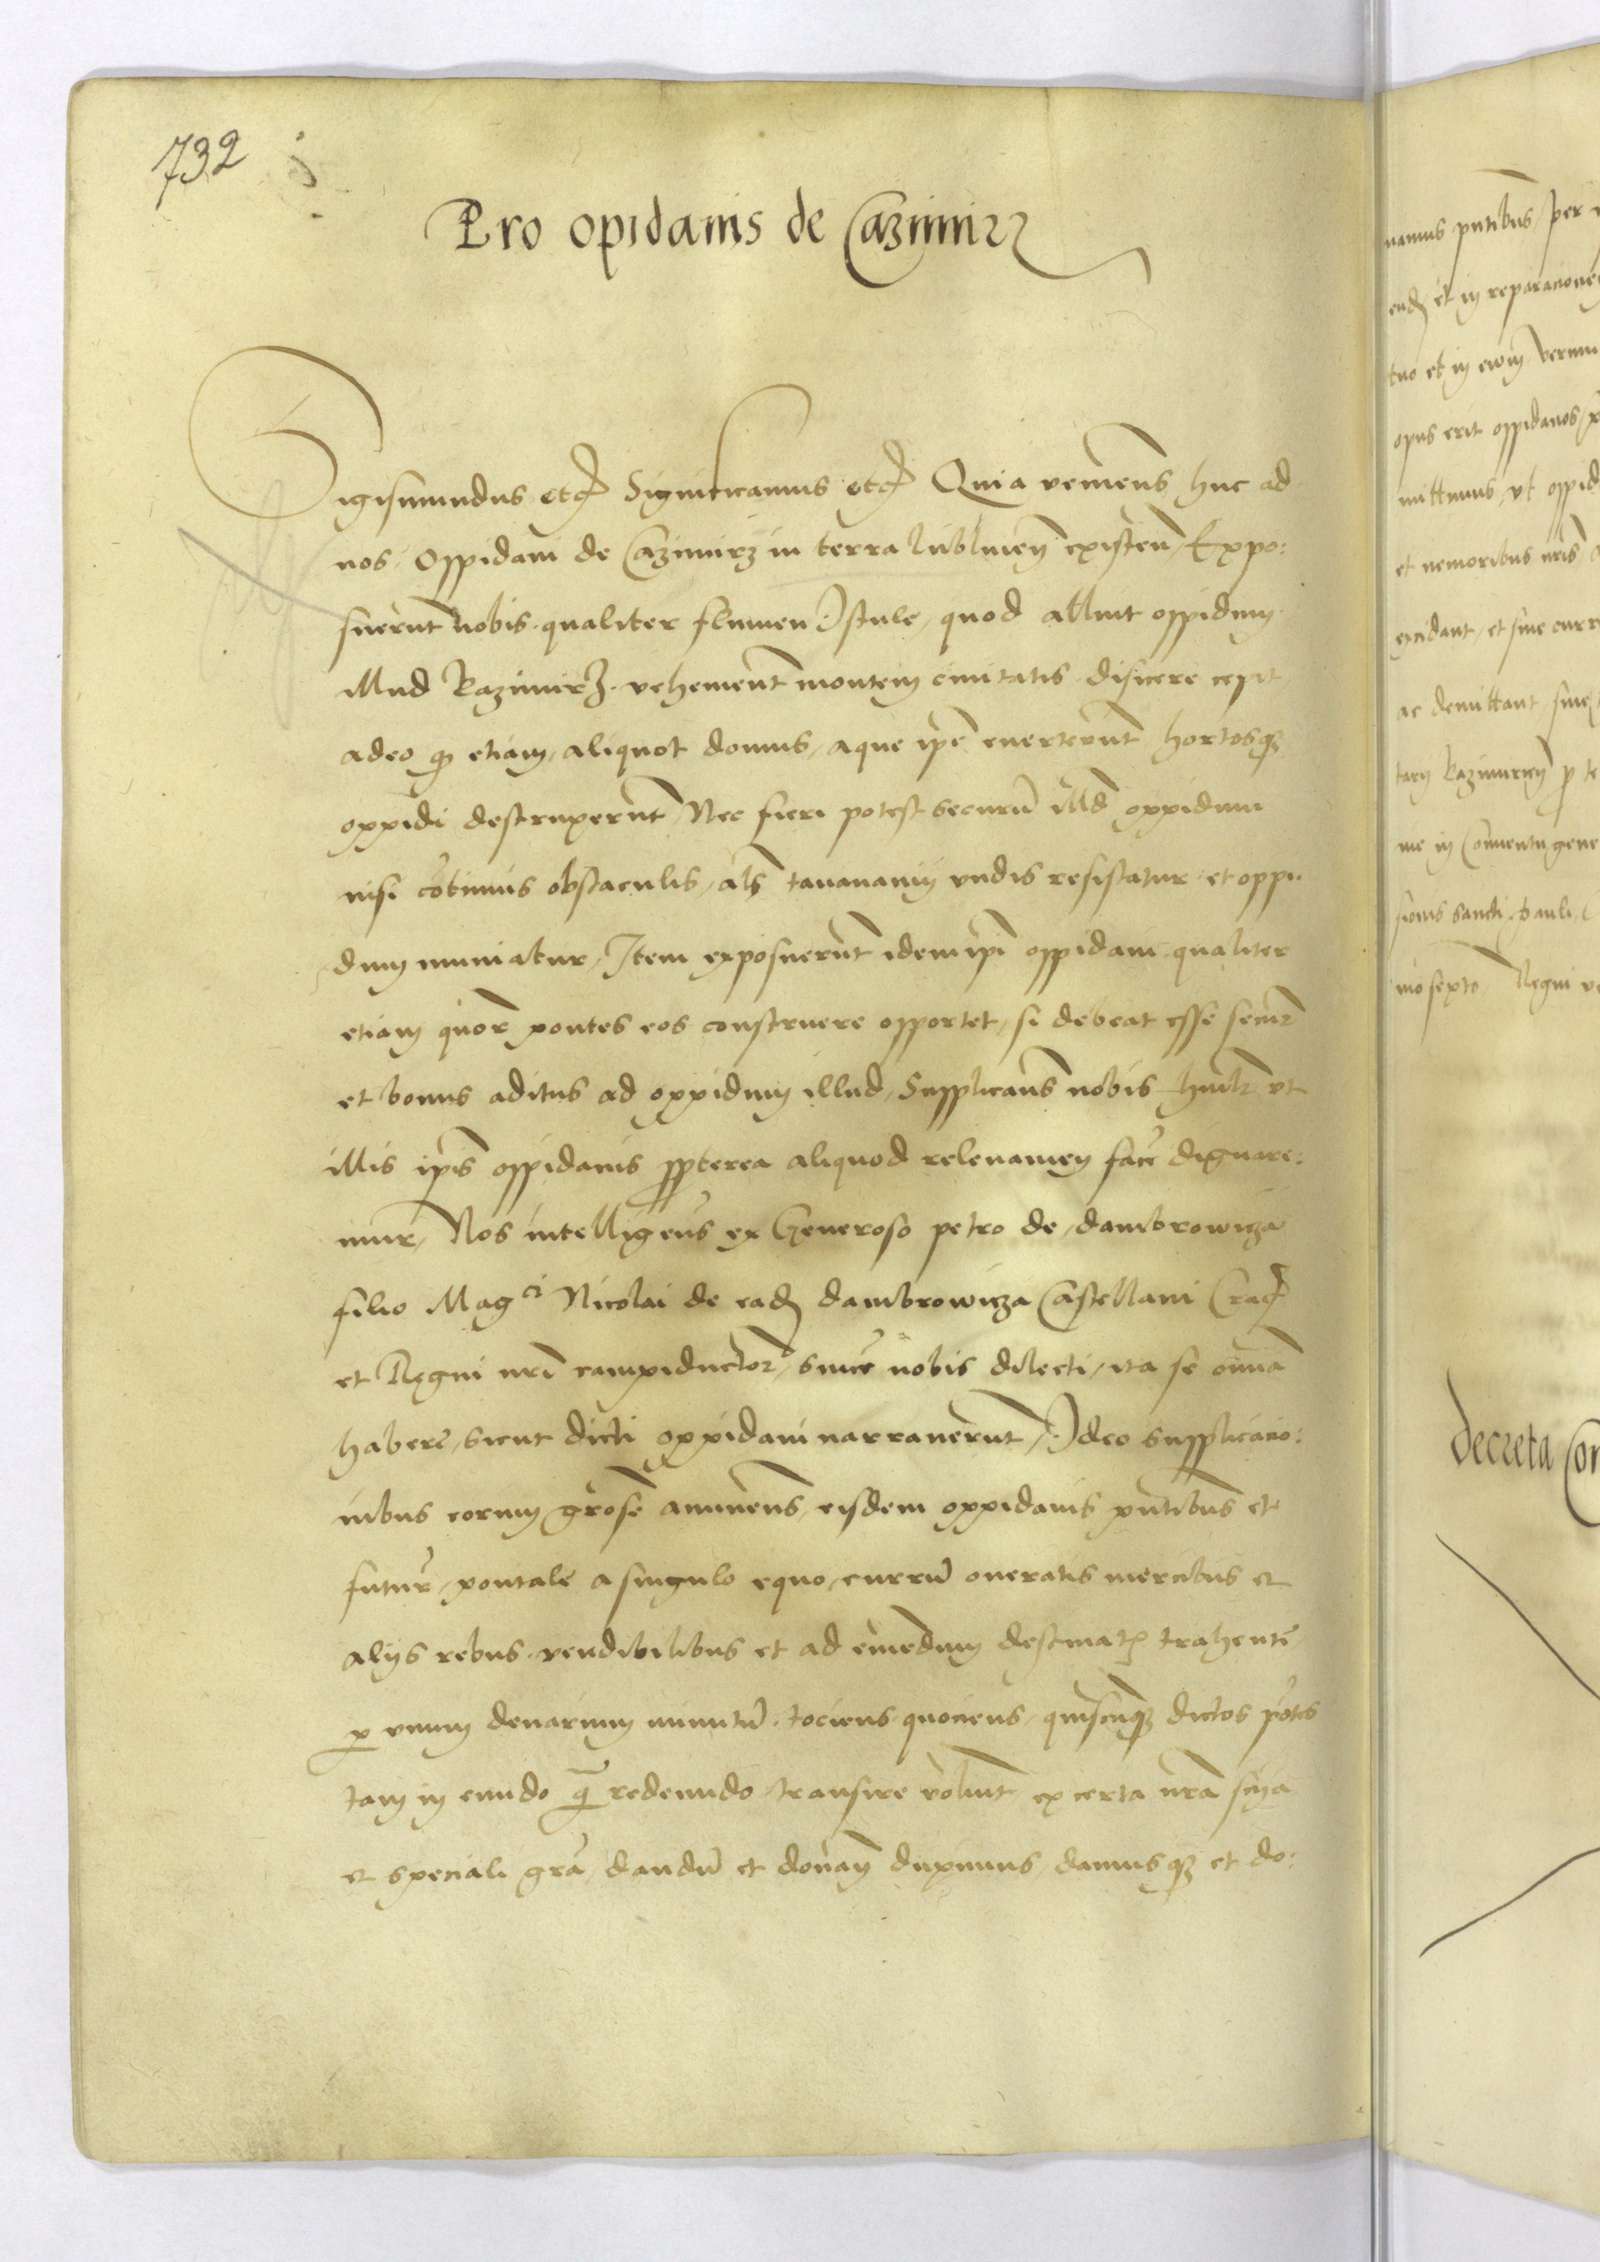 732
Pro opidanis de Cazimirz
Sigismundus etc Significamus etc Quia venients huc ad
nos Oppidani de Cazimirz in terra lublinen existen Expo:
suerunt nobis qualiter flumen Istule, quod alluit oppidum
illud Kazimirz vehement montem civitatis disicere cepit
adeo q etiam aliquot domus, aque ipe everterunt hortosqz
oppidi destruxerunt Nec fieri potest securu illd oppidum
nisi cotinuis obstaculis, als tavanamy undis resistatur et oppi:
dum muniatur, Item exposuerunt idem ipi oppidani qualiter
etiam quor pontes eos construere opportet, si debeat esse secur
et bonus aditus ad oppidum illud, Supplicans nobis humilr ut
illis ipis oppidanis ppterea aliquod relevamen face dignare:
mur, Nos intelligens ex Generoso petro de dambrowicza
filio Magci Nicolai de eadz dambrowicza Castellani Crac
et Regni nri campiductor, sincere nobis dilecti, ita se omnia
habere, sicut dicti oppidani narraverunt, Ideo supplicacio:
nibus eorum grose annuens, eisdem oppidanis pntibus et
futur, pontale a singulo equo, curru oneratis mercibus et
aliis rebus vendibilibus et ad emedum destinat trahente
p unum denarium minutu tociens quociens, quiscunqz dictos potes
tam in eundo qm redeundo transire volunt ex certa nra scia
et speciali gra, dandu et donan duximus, damusqz et do:
namus pntibus per
endz et in reparacionem
tuo et in evum verum
opus erit oppidanos
mittimus, ut oppid
et nemoribus nris
excidant, et sine curr
ac demittant, sine
Kazimirien p
me in Conventu gene
sionis sancti Pauli
mo sexto Regni
Decreta Con